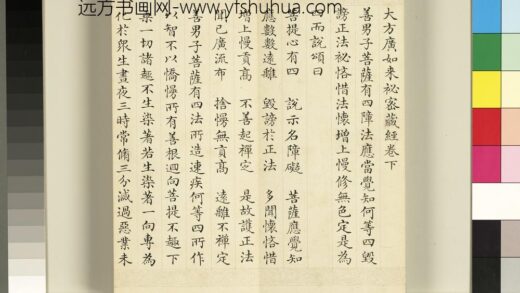 远方书画网-www.yfshuhua.com
大方廣如来秘密藏經卷下
善男子菩薩有四障法應當覺知何等四毀
謗正法秘悋惜法懷增上慢修無色定是為
四而說頌曰
菩提心有四 說示名障礙 菩薩應覺知
應數數遠離 毀謗於正法 多聞懷悋惜
增上慢貢高 不善起禪定 是故護正法
聞已廣流布 捨慢無貢高 遠離不禪定
善男子菩薩有四法所造速疾何等四所作
以智不以憍慢所有善根迴向菩提不趣下
乘一切諸趣不生染著若生染著一向專為
化於衆生晝夜三時常脩三分滅過惡業未